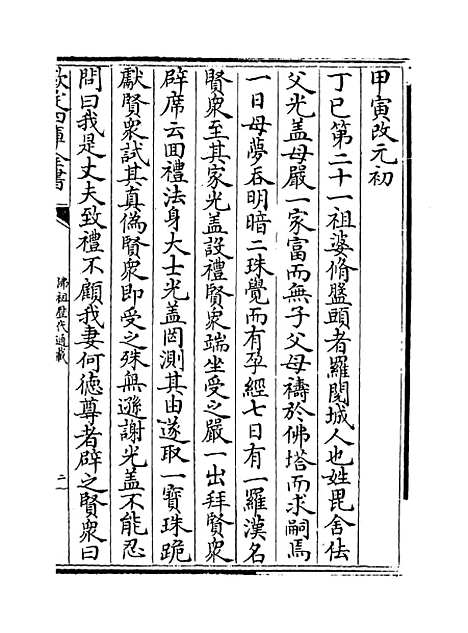 甲寅改元初
丁巳第二十一祖婆脩盤頭者羅閱城人也姓毘舍佉
父光盖母嚴一家富而無子父母禱於佛塔而求嗣焉
一日母夢吞明暗二珠覺而有孕經七日有一羅漢名
賢衆至其家光盖設禮賢衆端坐受之嚴一出拜賢衆
辟席云回禮法身大士光盖罔測其由遂取一寶珠跪
獻賢衆試其真偽賢衆即受之殊無遜謝光盖不能忍
問曰我是丈夫致禮不顧我妻何徳尊者辟之賢衆曰
欽定四庫全書
佛祖歷代通載
二